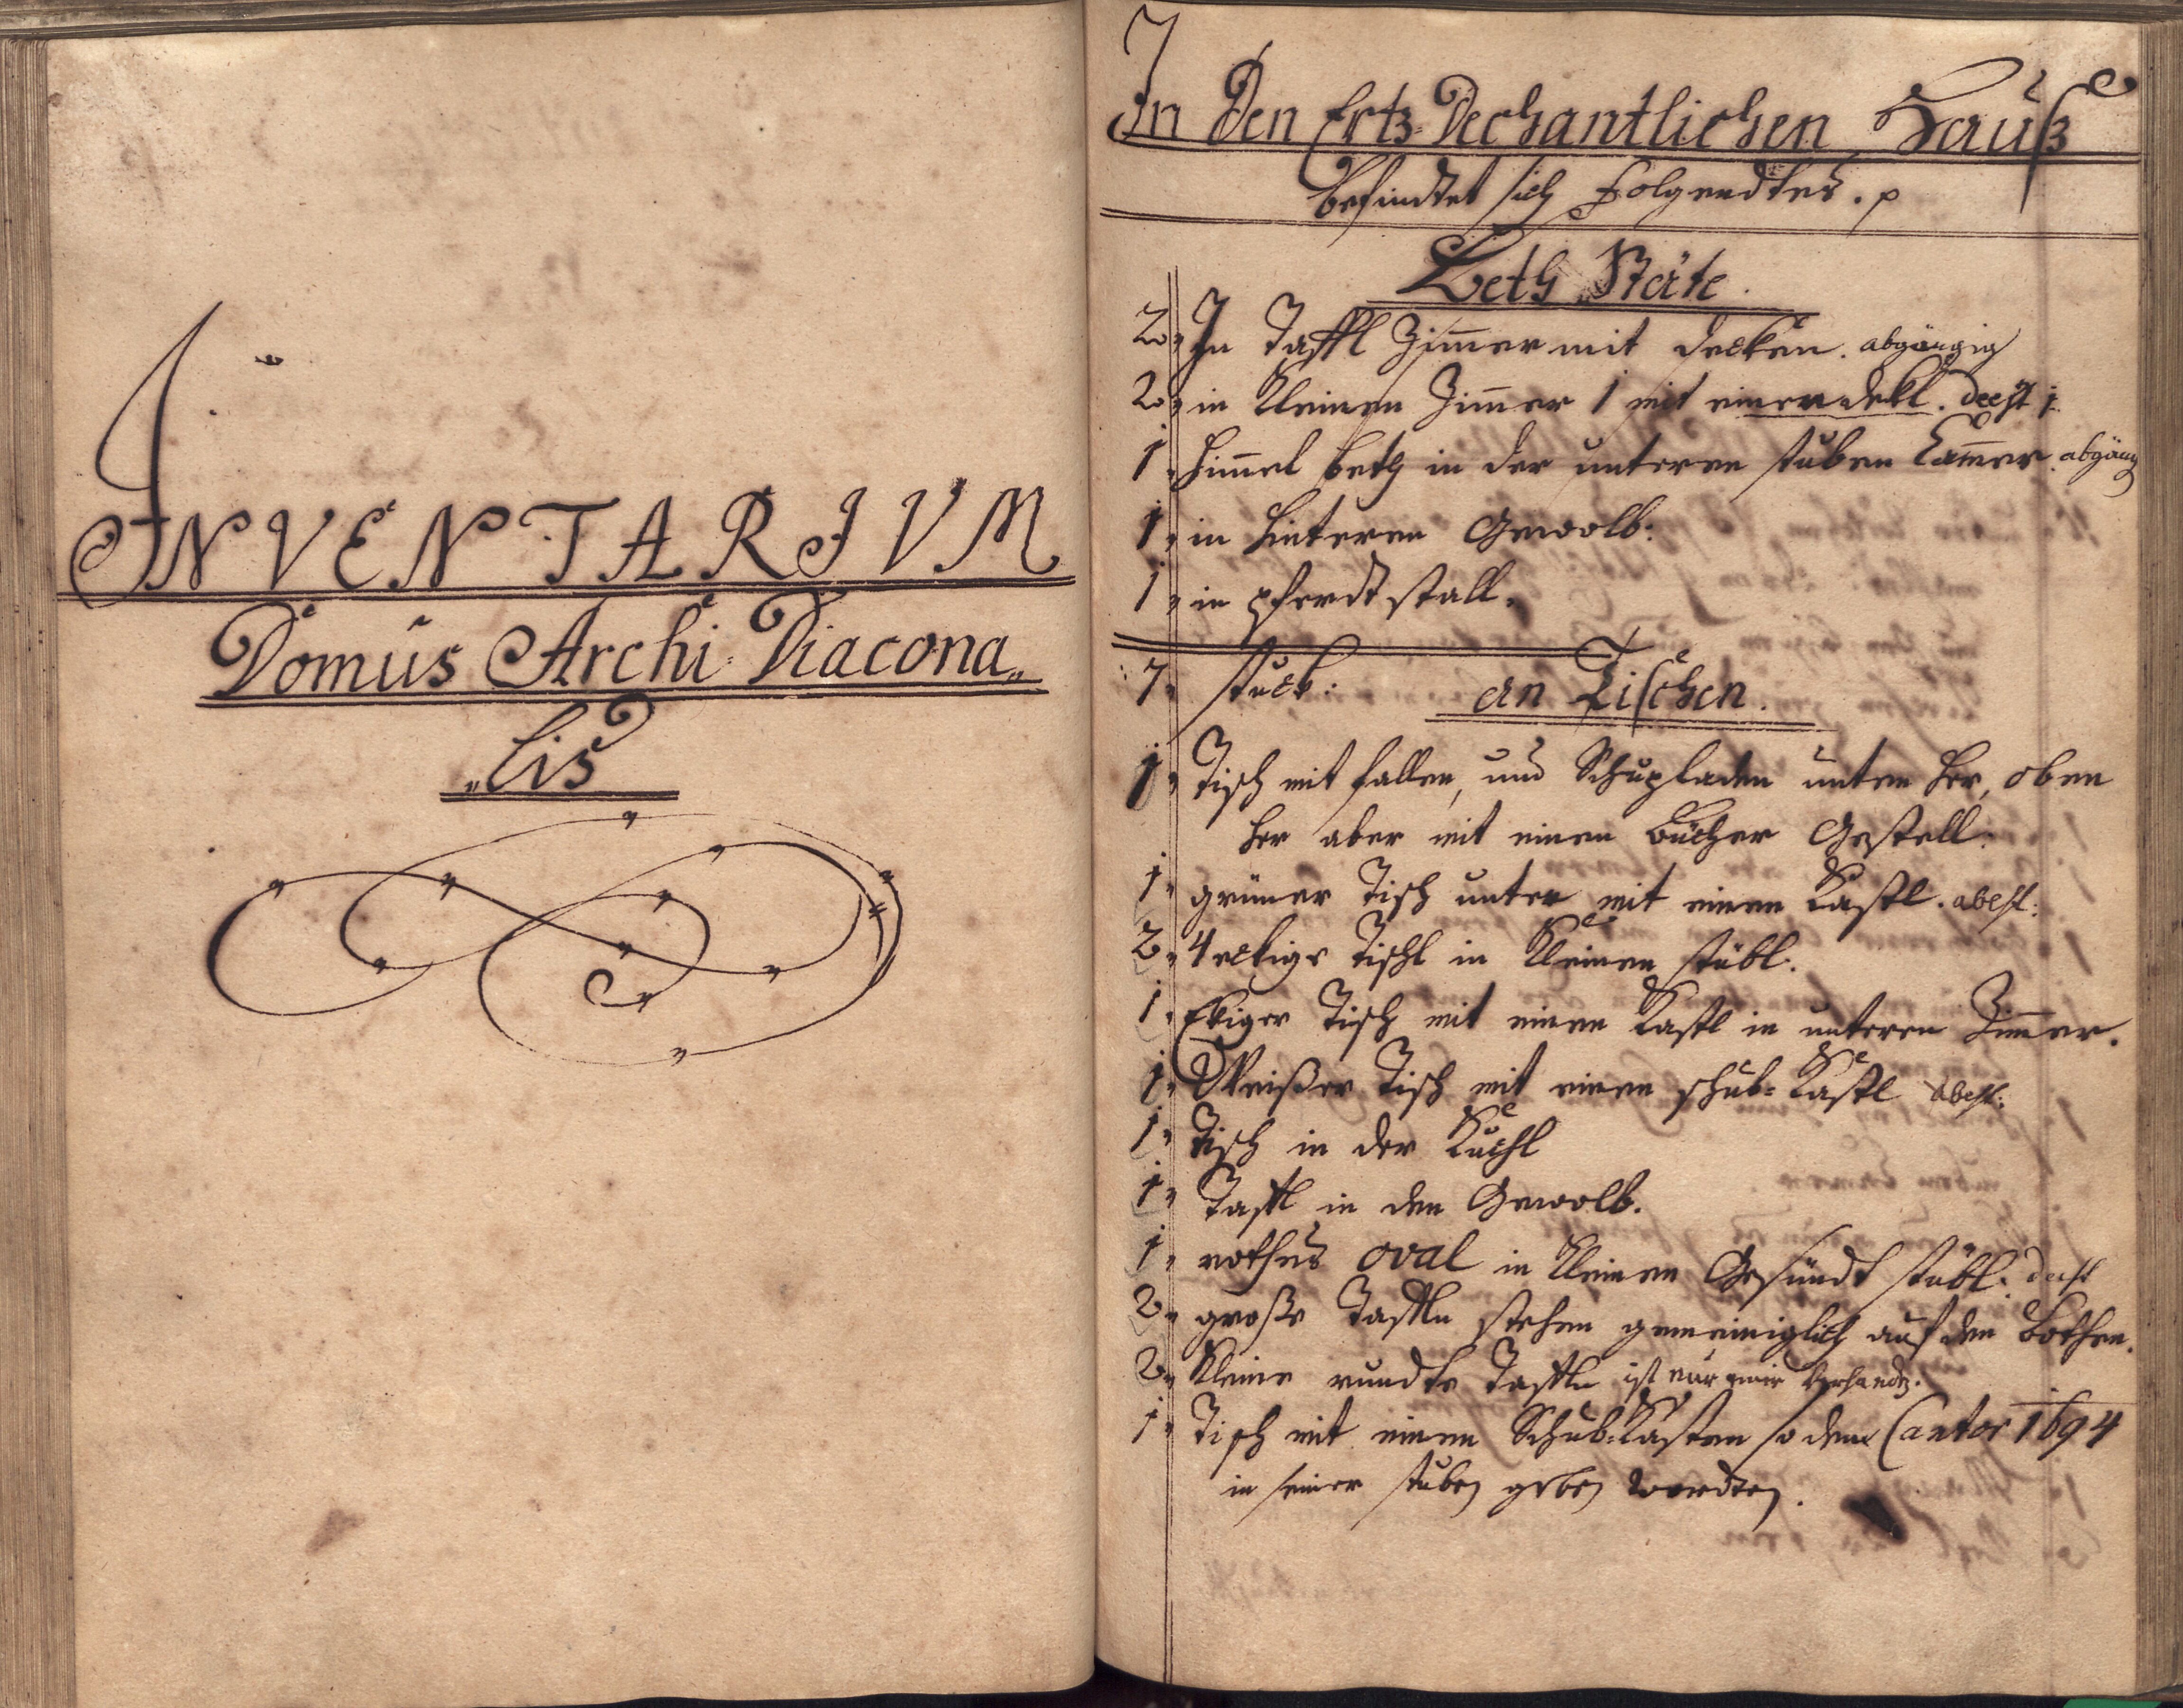 INVENTARIVM
Domus Archi Diacona„
„lis
In Den Ertz Dechantlichen Hauß
befindtet sich Folgendtes. p
Beth Stäte.
2„ In Taffl Zimmer mit decken. abgängig
2„ in kleinen Zimmer 1 mit einer dekl. deest j.
1„ Himmel beth in der unteren stuben Cammer. abgäng
1„ in hinteren Gewolb:
1„ in pferdt stall.
7„ stuck: an Tischen.
1„ Tisch mit fallen, und Schupladen unten her, oben
her aber mit einen Bücher Gestell.
1„ grüner Tisch unter mit einen Kastl. abest:
2„ 4 eckige Tischl in kleinen stübl.
1„ Ekiger Tisch mit einen Kastl in unteren Zimmer.
1„ Weißer Tisch mit einen schub=Kastl abest:
1„ Tisch in der Kuchl
1„ Taffl in den Gewolb.
1„ rothes oval in kleinen Gesündt stübl. deest
2„ große Taffln stehen gemeiniglich auf den Bothen.
2„ kleine rundte Taffln ist nur eine Verhandt.
1„ Tisch mit einen Schub=Kasten so dem Cantor 1694
in seiner stuben geben wordten.